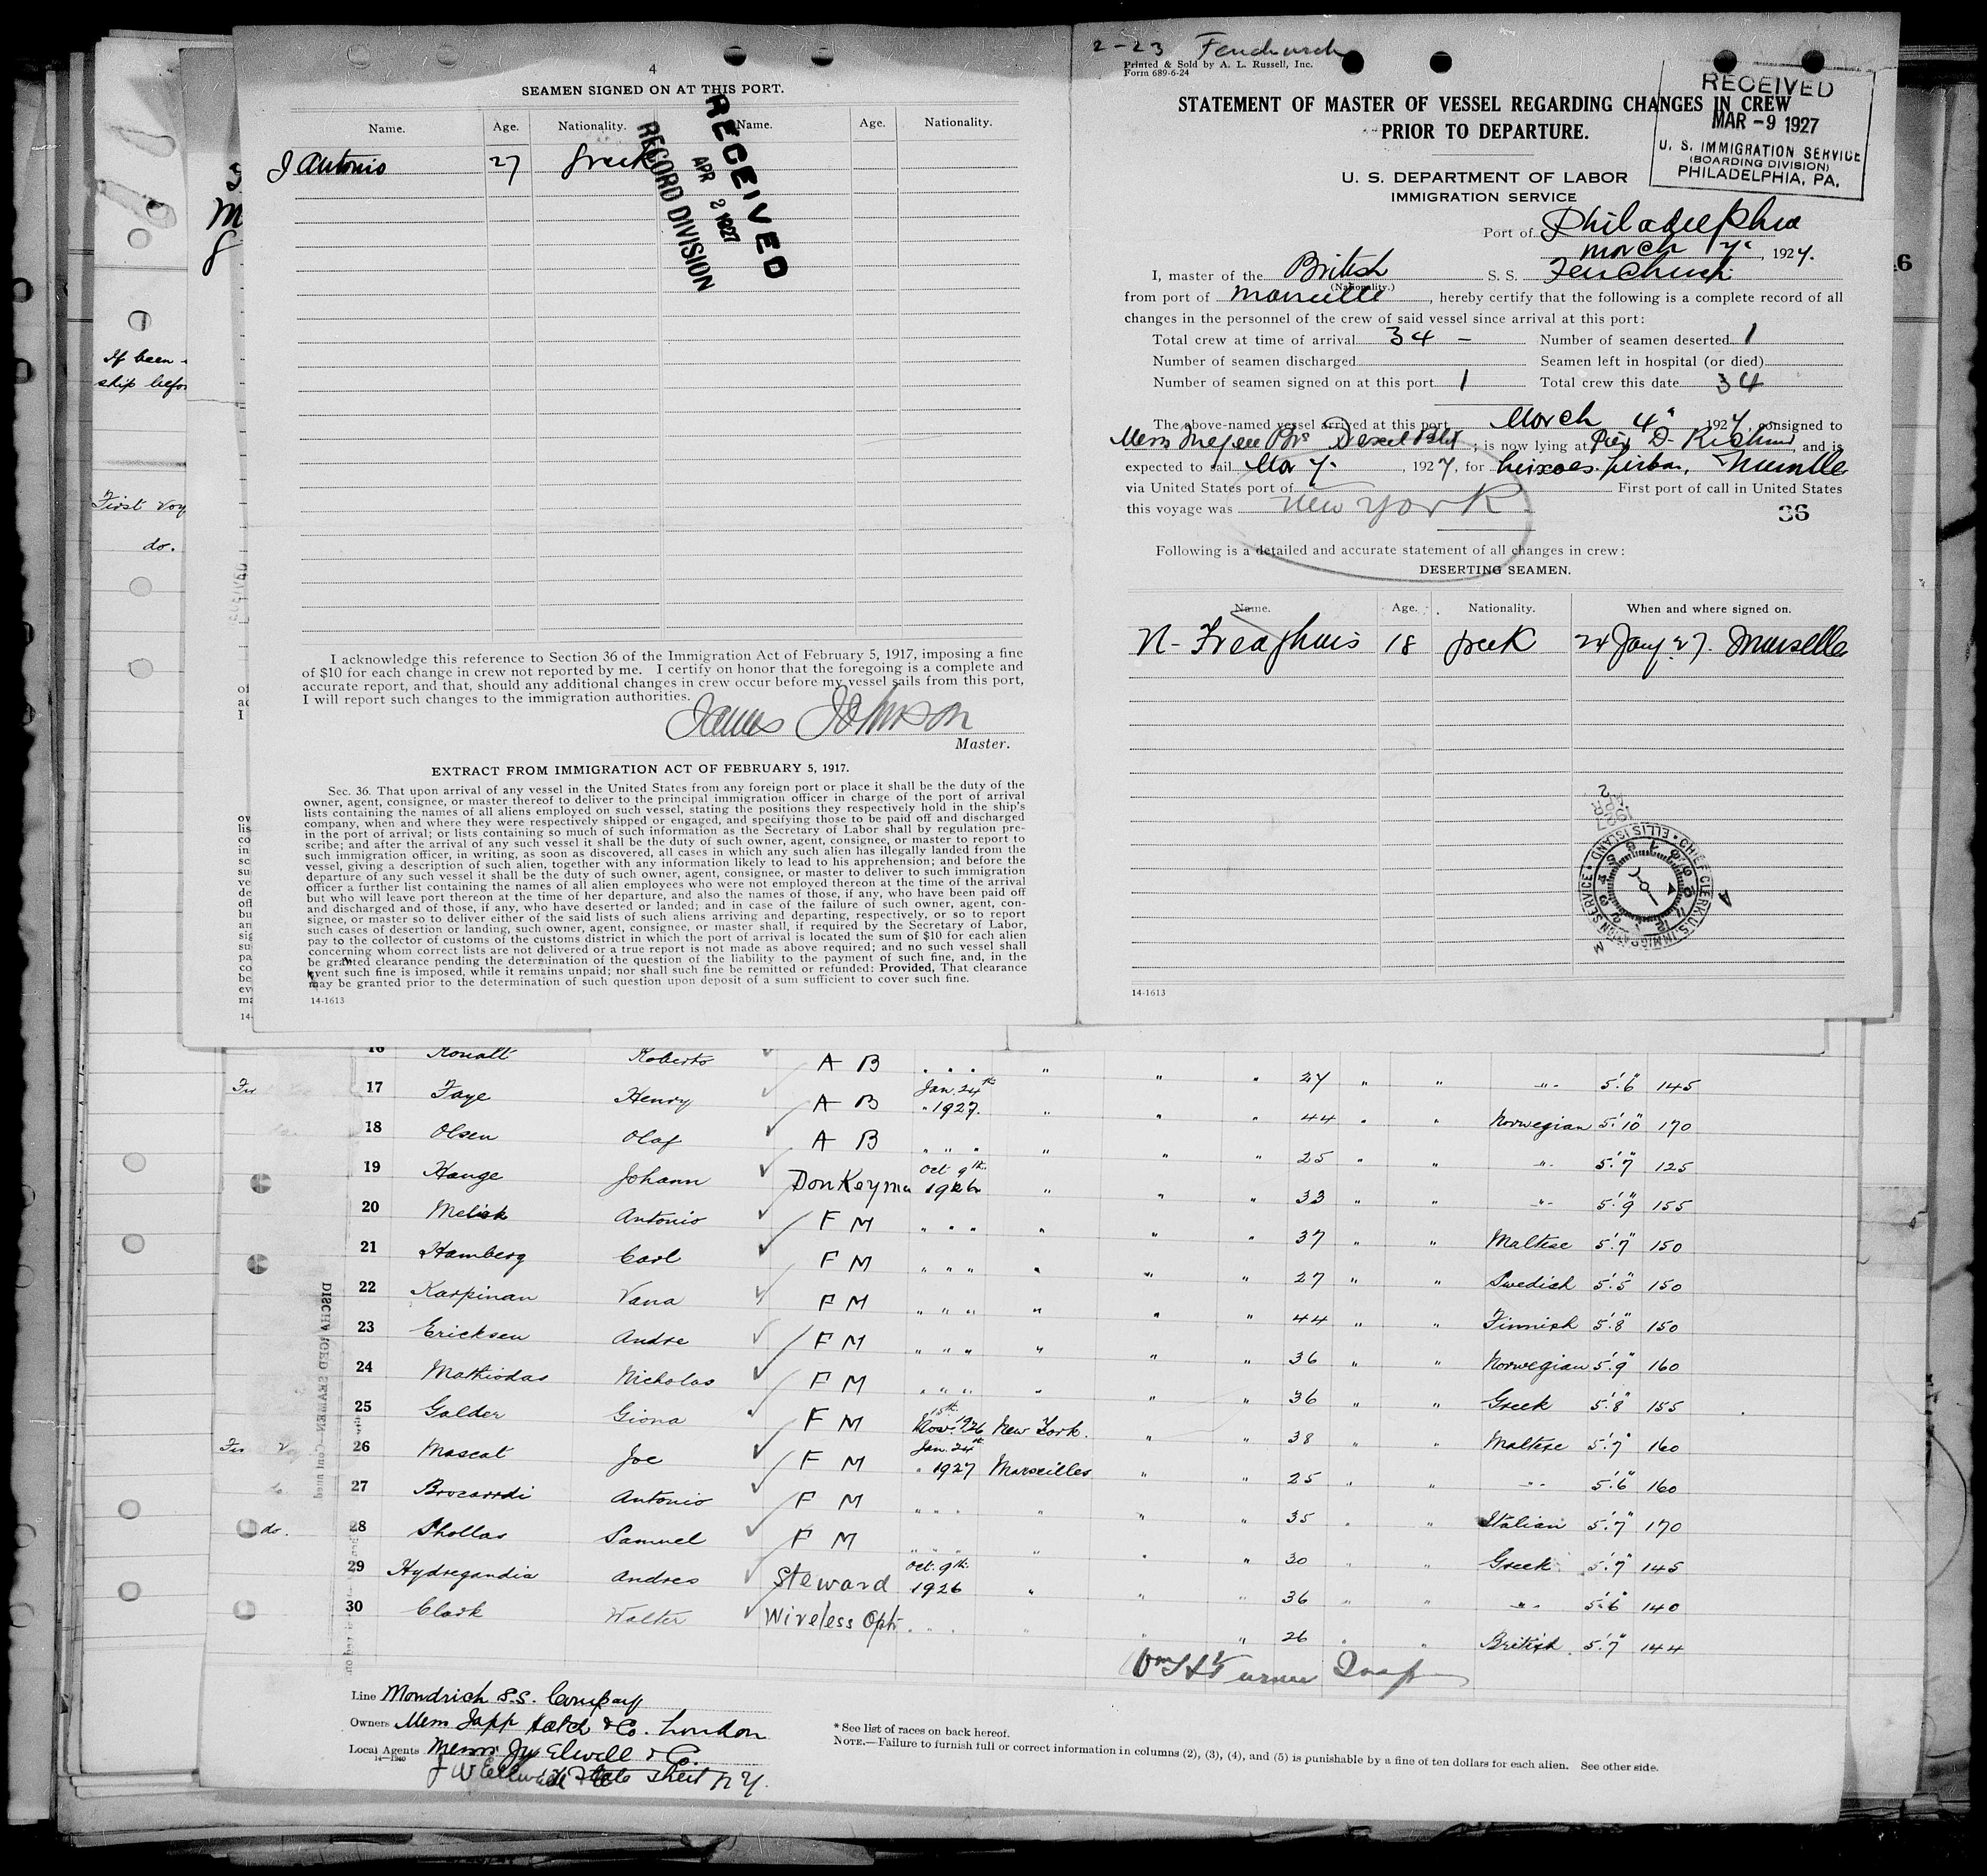 4
SEAMEN SIGNED ON AT THIS PORT.
Name. Age. Nationality. Name. Age. Nationality.
J Antonio 27 Greek
RECEIVED
APR 2 1927
RECORD DIVISION
I acknowledge this reference to Section 36 of the Immigration Act of February 5, 1917, imposing a fine
of $10 for each change in crew not reported by me. I certify on honor that the foregoing is a complete and
accurate report, and that, should any additional changes in crew occur before my vessel sails from this port,
I will report such changes to the immigration authorities.
James Johnson
Master.
EXTRACT FROM IMMIGRATION ACT OF FEBRUARY 5, 1917.
Sec. 36. That upon arrival of any vessel in the United States from any foreign port or place it shall be the duty of the
owner, agent, consignee, or master thereof to deliver to the principal immigration officer in charge of the port of arrival
lists containing the names of all aliens employed on such vessel, stating the positions they respectively hold in the ship's
company, when and where they were respectively shipped or engaged, and specifying those to be paid off and discharged
in the port of arrival; or lists containing so much of such information as the Secretary of Labor shall by regulation pre-
scribe; and after the arrival of any such vessel it shall be the duty of such owner, agent, consignee, or master to report to
such immigration officer, in writing, as soon as discovered, all cases in which any such alien has illegally landed from the
vessel, giving a description of such alien, together with any information likely to lead to his apprehension; and before the
departure of any such vessel it shall be the duty of such owner, agent, consignee, or master to deliver to such immigration
officer a further list containing the names of all alien employees who were not employed thereon at the time of the arrival
but who will leave port thereon at the time of her departure, and also the names of those, if any, who have been paid off
and discharged and of those, if any, who have deserted or landed; and in case of the failure of such owner, agent, con-
signee, or master so to deliver either of the said lists of such aliens arriving and departing, respectively, or so to report
such cases of desertion or landing, such owner, agent, consignee, or master shall, if required by the Secretary of Labor,
pay to the collector of customs of the customs district in which the port of arrival is located the sum of $10 for each alien
concerning whom correct lists are not delivered or a true report is not made as above required; and no such vessel shall
be granted clearance pending the determination of the question of the liability to the payment of such fine, and, in the
event such fine is imposed, while it remains unpaid; nor shall such fine be remitted or refunded: Provided, That clearance
may be granted prior to the determination of such question upon deposit of a sum sufficient to cover such fine.
14-1613
2-23 Fenchurch
Printed & Sold by A. L. Russell, Inc.
Form 689-6-24
STATEMENT OF MASTER OF VESSEL REGARDING CHANGES IN CREW
PRIOR TO DEPARTURE.
RECEIVED
MAR -9 1927
U. S. IMMIGRATION SERVICE
(BOARDING DIVISION)
PHILADELPHIA, PA.
U. S. DEPARTMENT OF LABOR
IMMIGRATION SERVICE
Port of Philadelphia
March 7, 1927.
I, master of the British S. S. Fenchurch
(Nationality.)
from port of Marseille, hereby certify that the following is a complete record of all
changes in the personnel of the crew of said vessel since arrival at this port:
Total crew at time of arrival 34 - Number of seamen deserted 1
Number of seamen discharged Seamen left in hospital (or died)
Number of seamen signed on at this port 1 Total crew this date 34
The above-named vessel arrived at this port March 4, 1927, consigned to
; is now lying at Pier D- Richmd, and is
expected to sail Mar 7, 1927, for Leixoes. Lisbon, Marseille
via United States port of First port of call in United States
this voyage was New York
36
Following is a detailed and accurate statement of all changes in crew:
DESERTING SEAMEN.
Name. Age. Nationality. When and where signed on.
N- 18 Greek 24 Jany 27. Marseille
APR 2 1927
CHIEF CLERK U.S. IMMIGRATION SERVICE ELLIS ISLAND
14-1613
If been
ship befor
First voy
do.
16 Roberto A B " " " " " " 27 " " " 5'.6" 145
17 Faye Henry A B Jan. 24th 1927. " " " 44 " " Norwegian 5'.10" 170
18 Olsen Olaf A B " " " " " " 25 " " " 5'.7" 125
19 Hauge Johann Donkeyman Oct 9th 1926 " " " 33 " " " 5'.9" 155
20 Melick Antonio F M " " " " " " 37 " " Maltese 5'.7" 150
21 Hamberg Carl F M " " " " " " 27 " " Swedish 5'.5" 150
22 Karpinan Vana F M " " " " " " 44 " " Finnish 5'.8" 150
23 Ericksen Andre F M " " " " " " 36 " " Norwegian 5'.9" 160
24 Mathiodas Nicholas F M " " " " " " 36 " " Greek 5'.8" 155
25 Galder Giona F M Nov. 15th 1926 New York. " " 38 " " Maltese 5'.7" 160
26 Mascat Joe F M Jan. 24th 1927 Marseilles " " 25 " " " 5'.6" 160
27 Brocarrdi Antonio F M " " " " " " 35 " " Italian 5'.7" 170
do. 28 Phollas Samuel F M " " " " " " 30 " " Greek 5'.7" 145
29 Hydregandia Andres Steward Oct. 9th. 1926 " " " 36 " " " 5'.6" 140
30 Clark Walter Wireless Optr " " " " " " 26 " " British 5'.7" 144
DISCHARGED SEAMEN-Continued
Turner Insp
Line Mondrich S.S. Company
Owners Mess Japp Hatch & Co. London
Local Agents Messrs J W Elwell & Co.
14-1240
State Street N Y.
* See list of races on back hereof.
NOTE.—Failure to furnish full or correct information in columns (2), (3), (4), and (5) is punishable by a fine of ten dollars for each alien. See other side.